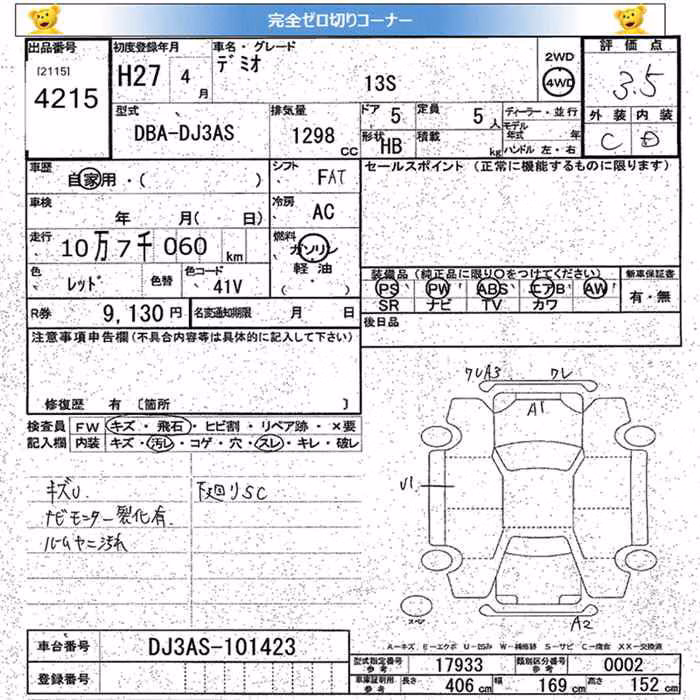 完全ゼロ切りコーナー
出品番号 初度登録年月 車名・グレード 2WD 評価点
[2115] 4215 H27 4月 デミオ 13S 4WD 3.5
型式 排気量 ドア 5 定員 5人 ディーラー・並行 外装 内装
DBA-DJ3AS 1298 CC 形状 HB 積載 kg モデル年式 年 C D
ハンドル 左・右
車歴 自家用・( ) シフト FAT セールスポイント (正常に機能するものに限ります)
車検 年 月( 日) 冷房 AC
走行 10万7千060 km 燃料 ガソリン 軽油 ( )
色 レッド 色替 色コード 41V 装備品 (純正品に限り○をつけてください) 新車保証書
PS PW ABS エアB AW 有・無
SR ナビ TV カワ
R券 9,130円 名変通知期限 月 日 後日品
注意事項申告欄 (不具合内容等は具体的に記入して下さい)
修復歴 有 〔箇所 〕
検査員記入欄 FW キズ・飛石・ヒビ割・リペア跡・×要
内装 キズ・汚レ・コゲ・穴・スレ・キレ・破レ
キズU 下廻りSC
ナビモニター劣化有
ルームヤニ汚れ
ワレA3 ワレ
A1
U1
スペア
A2
A-キズ E-エクボ U-凹み W-補修跡 S-サビ C-腐食 XX-交換済
車台番号 DJ3AS-101423
登録番号
型式指定番号 参考 17933 類別区分番号 参考 0002
車庫証明用 参考 長さ 406cm 幅 169cm 高さ 152cm